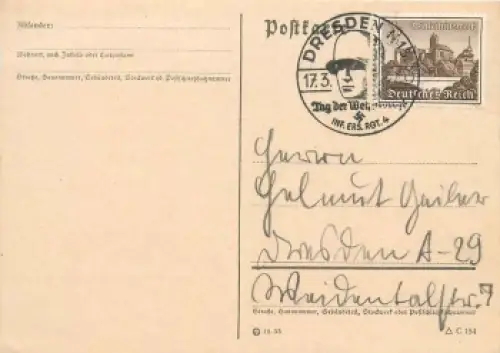 Absender:
Postkarte
Wohnort, auch Zustell- oder Leitpostamt
Straße, Hausnummer, Gebäudeteil, Stockwerk od. Postschließfachnummer
DRESDEN N 15
17.3.
Tag der Wehrmacht
INF. ERS. RGT. 4
Winterhilfswerk
Deutsches Reich
Herrn
Helmut Geiler
Dresden A-29
Weidentalstr.
Straße, Hausnummer, Gebäudeteil, Stockwerk oder Postschließfachnummer
C 154